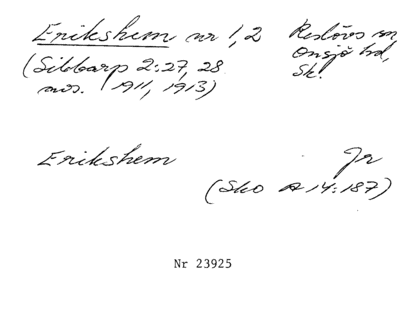 Erikshem nr 1,2 Reslövs sn,
(Sibbarp 2:27, 28 Onsjö hd,
nos. 1911, 1913) Sk.
Erikshem Jr
(Sko A 14:187)
Nr 23925